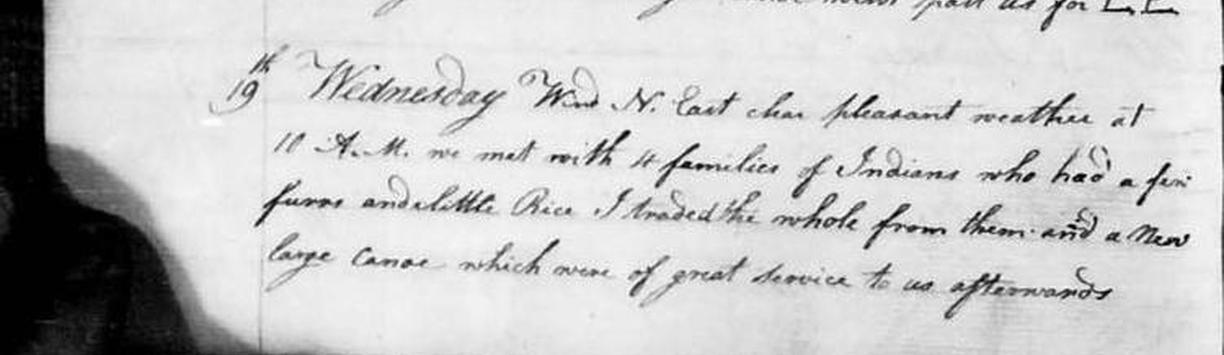 past us for L L
19th Wednesday Wind N. East clear pleasant weather at
10 A.M. we met with 4 families of Indians who had a few
furrs and little Rice I traded the whole from them and a New
large Canoe which were of great service to us afterwards